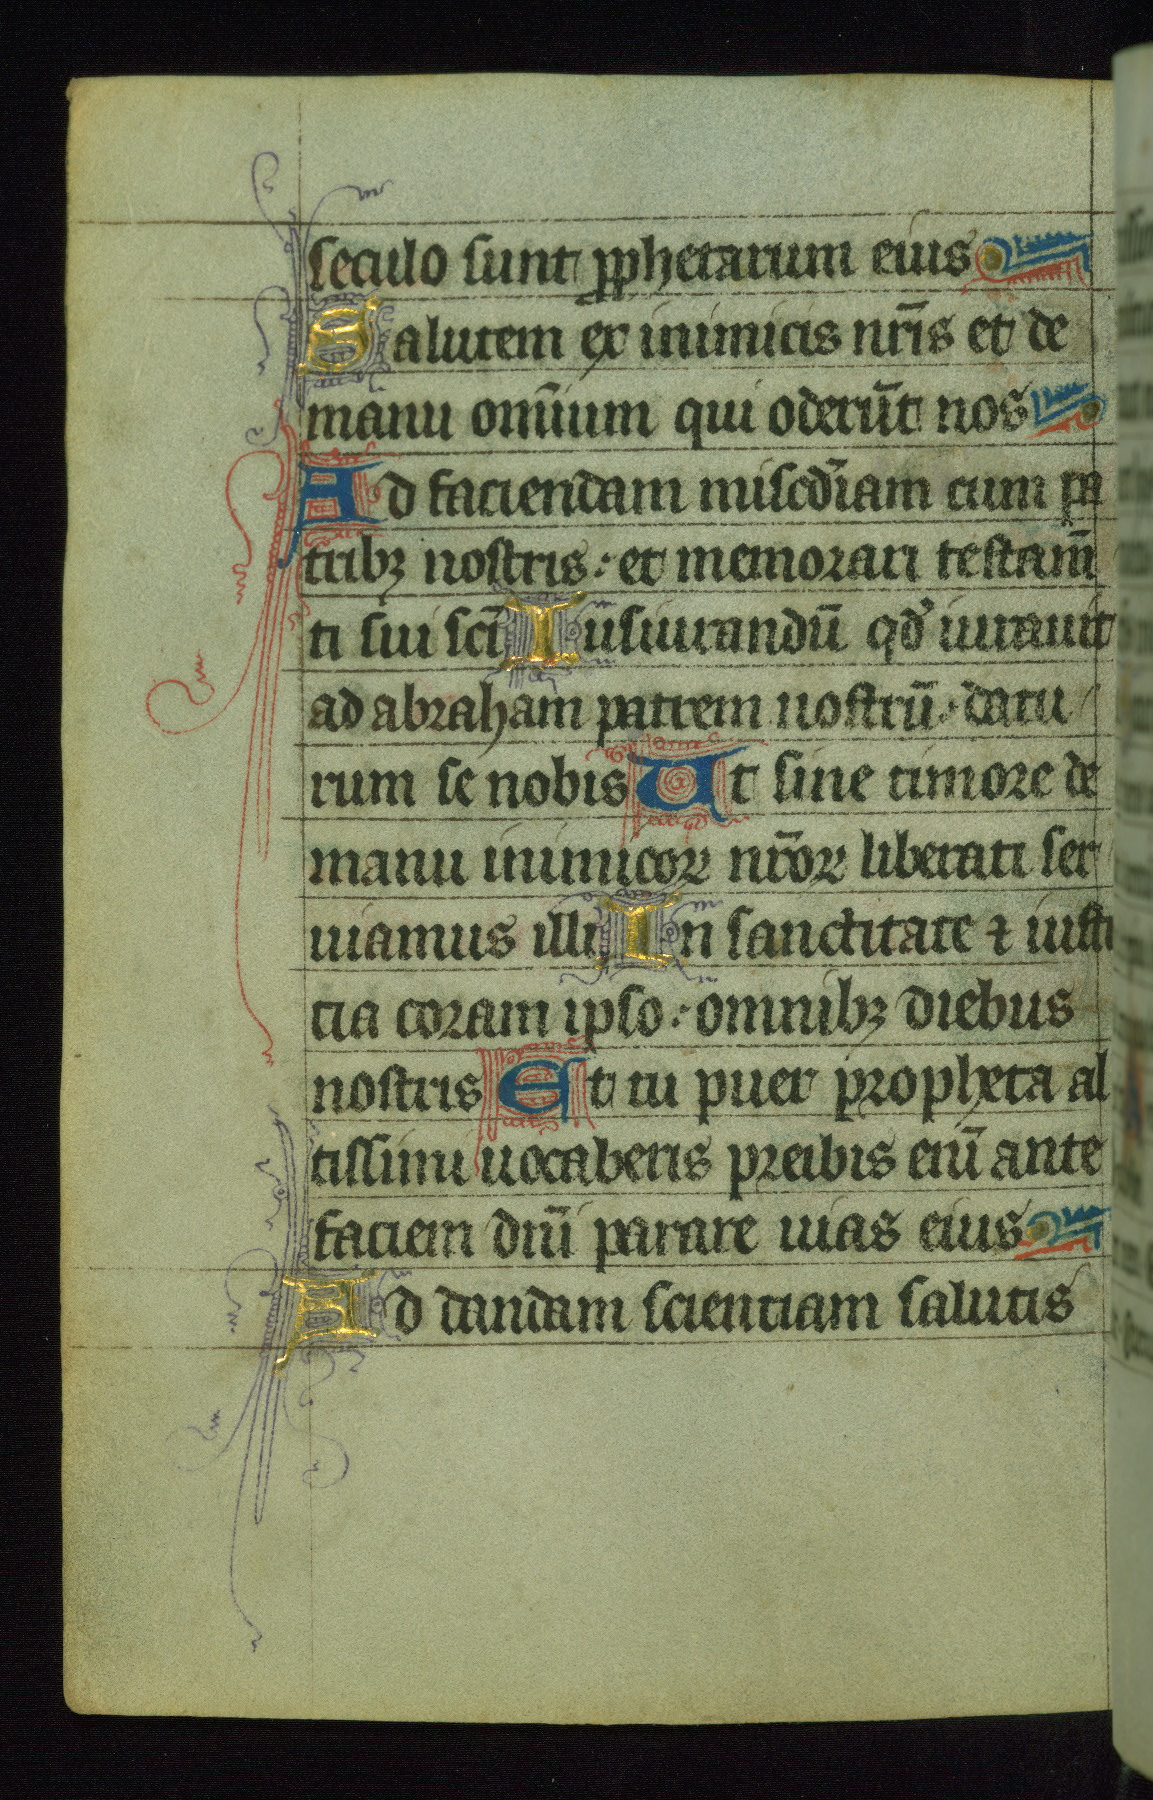 seculo sunt ꝓphetarum eius
Salutem ex inimicis nr̄is et de
manu om̄ium qui oderūt nos
Ad faciendam miscd̄iam cum pa
tribꝫ nostris : et memorari testam̄
ti sui sc̄i Iusiurandū qd̓ iurauit
ad abraham patrem nostrū : datu
rum se nobis Ut sine timore de
manu inimicoꝝ nr̄oꝝ liberati ser
uiamus illi In sanctitate ⁊ iusti
cia coram ipso : omnibꝫ diebus
nostris Et tu puer propheta al
tissimi uocaberis preibis eni̅ ante
faciem dn̄i parare uias eius
Ad dandam scientiam salutis